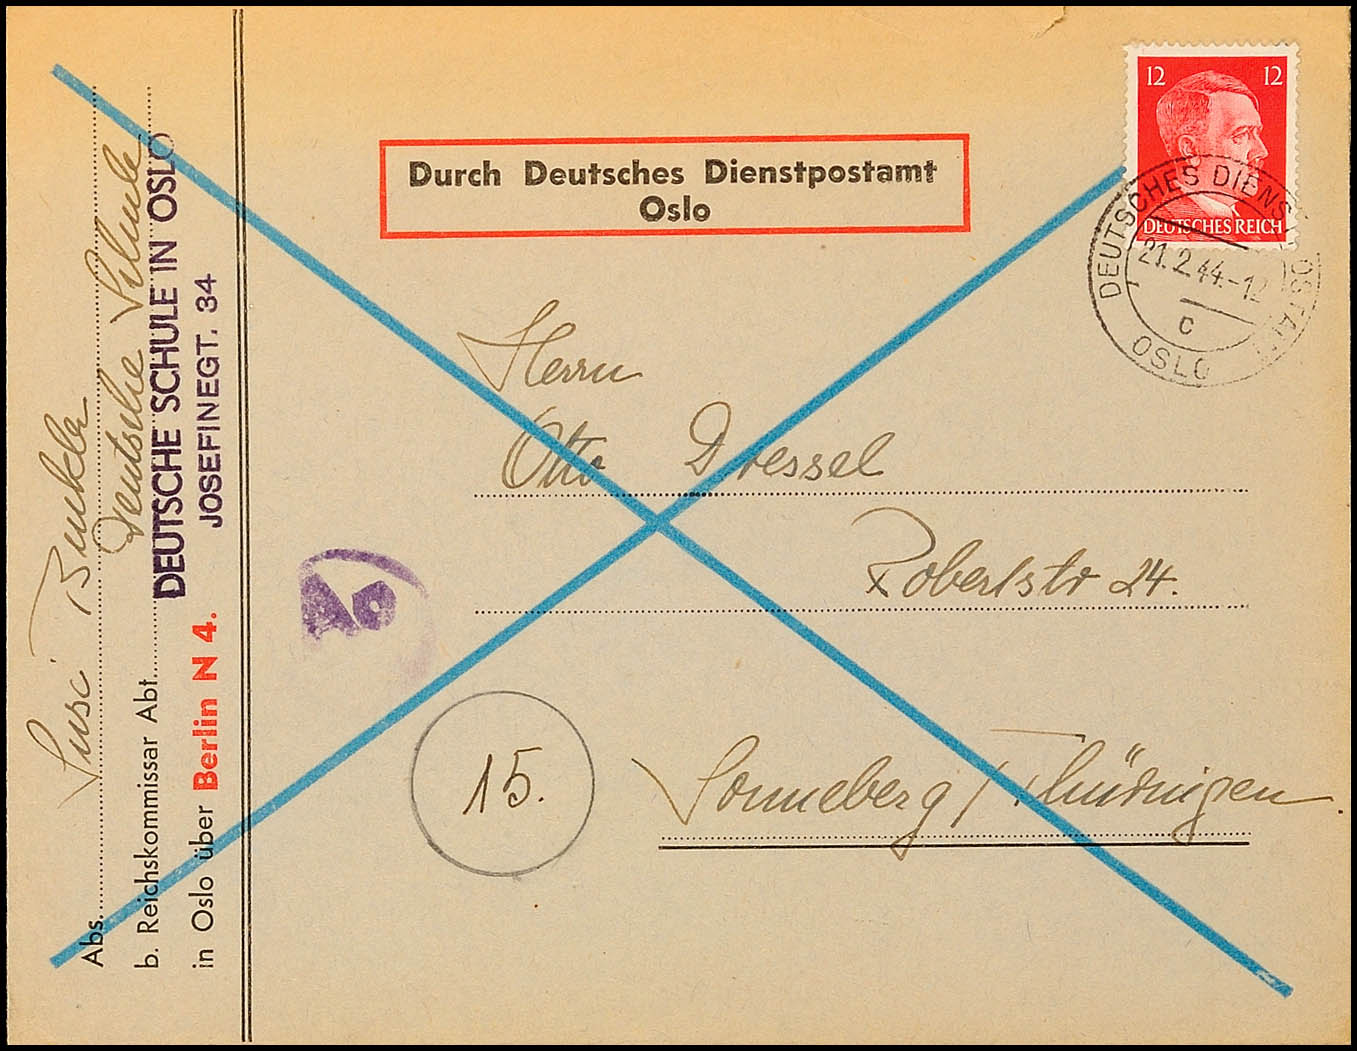 12 12
DEUTSCHES REICH
Durch Deutsches Dienstpostamt
Oslo
DEUTSCHES DIENSTPOSTAMT
21.2.44.-12
c
OSLO
Herrn
Otto Dressel
Robertstr 24.
15.
Sonneberg / Thüringen.
Abs. Susi
Deutsche Schule
b. Reichskommissar Abt.
DEUTSCHE SCHULE IN OSLO
in Oslo über Berlin N 4.
JOSEFINEGT. 34